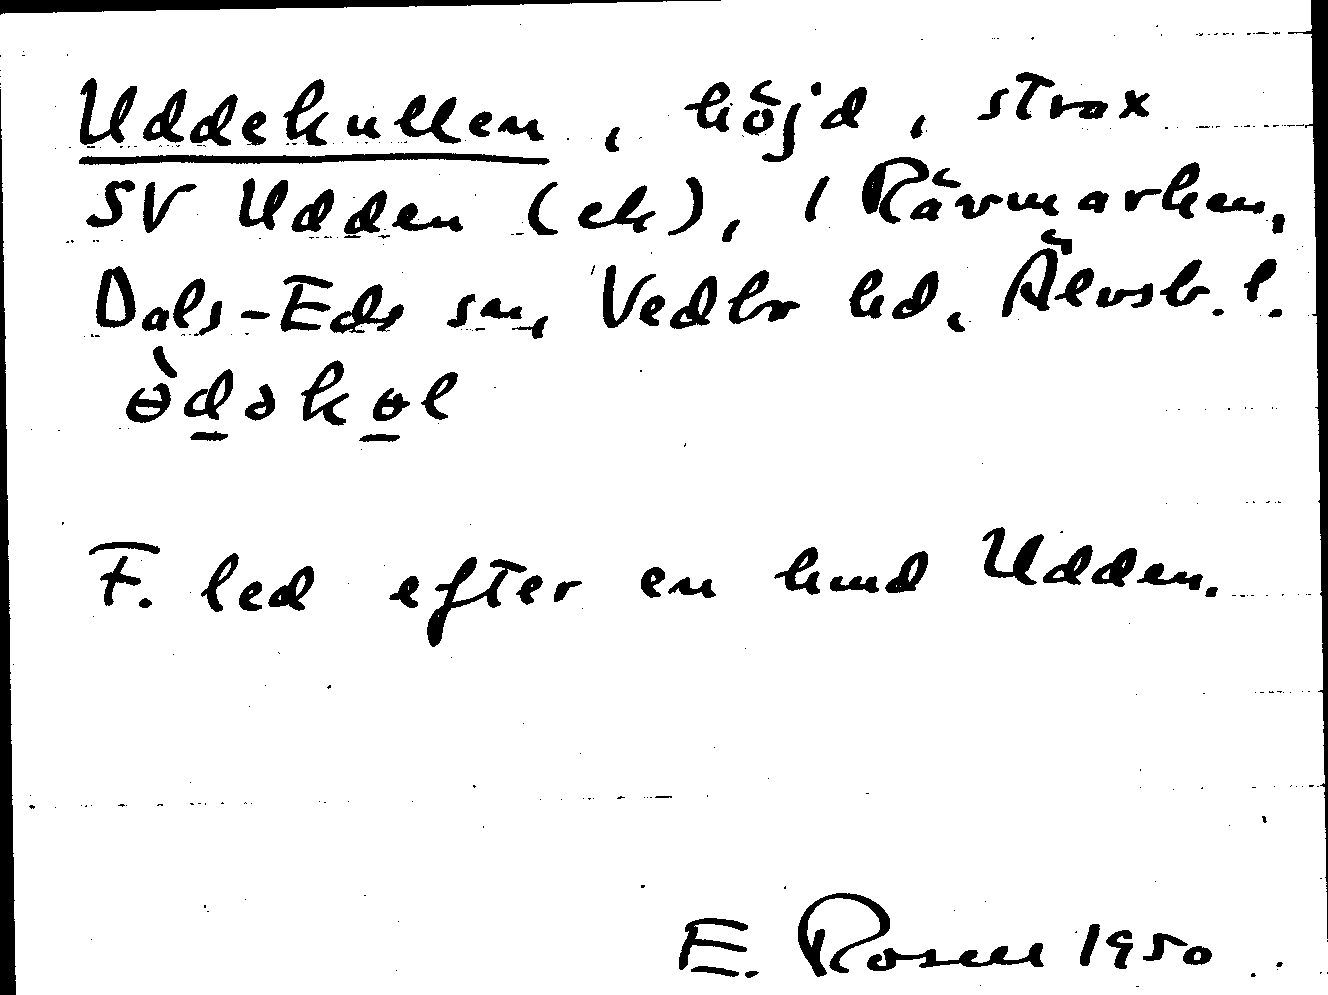 Uddekullen, höjd, strax
SV Udden (ek), i Rävmarken,
Dals-Eds sn, Vedbo hd, Älvsb. l.
ɵ̀d̲əkɵ̲l
F. led efter en hund Udden.
E. Rosell 1950